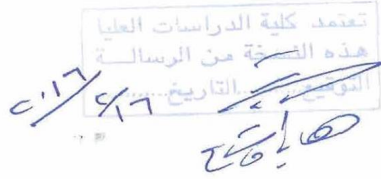 تعتمد كلية الدراسات العليا
هذه النسخة من الرسالــة
التوقيع.........التاريخ.........
٢٠١٦/٢/١٦